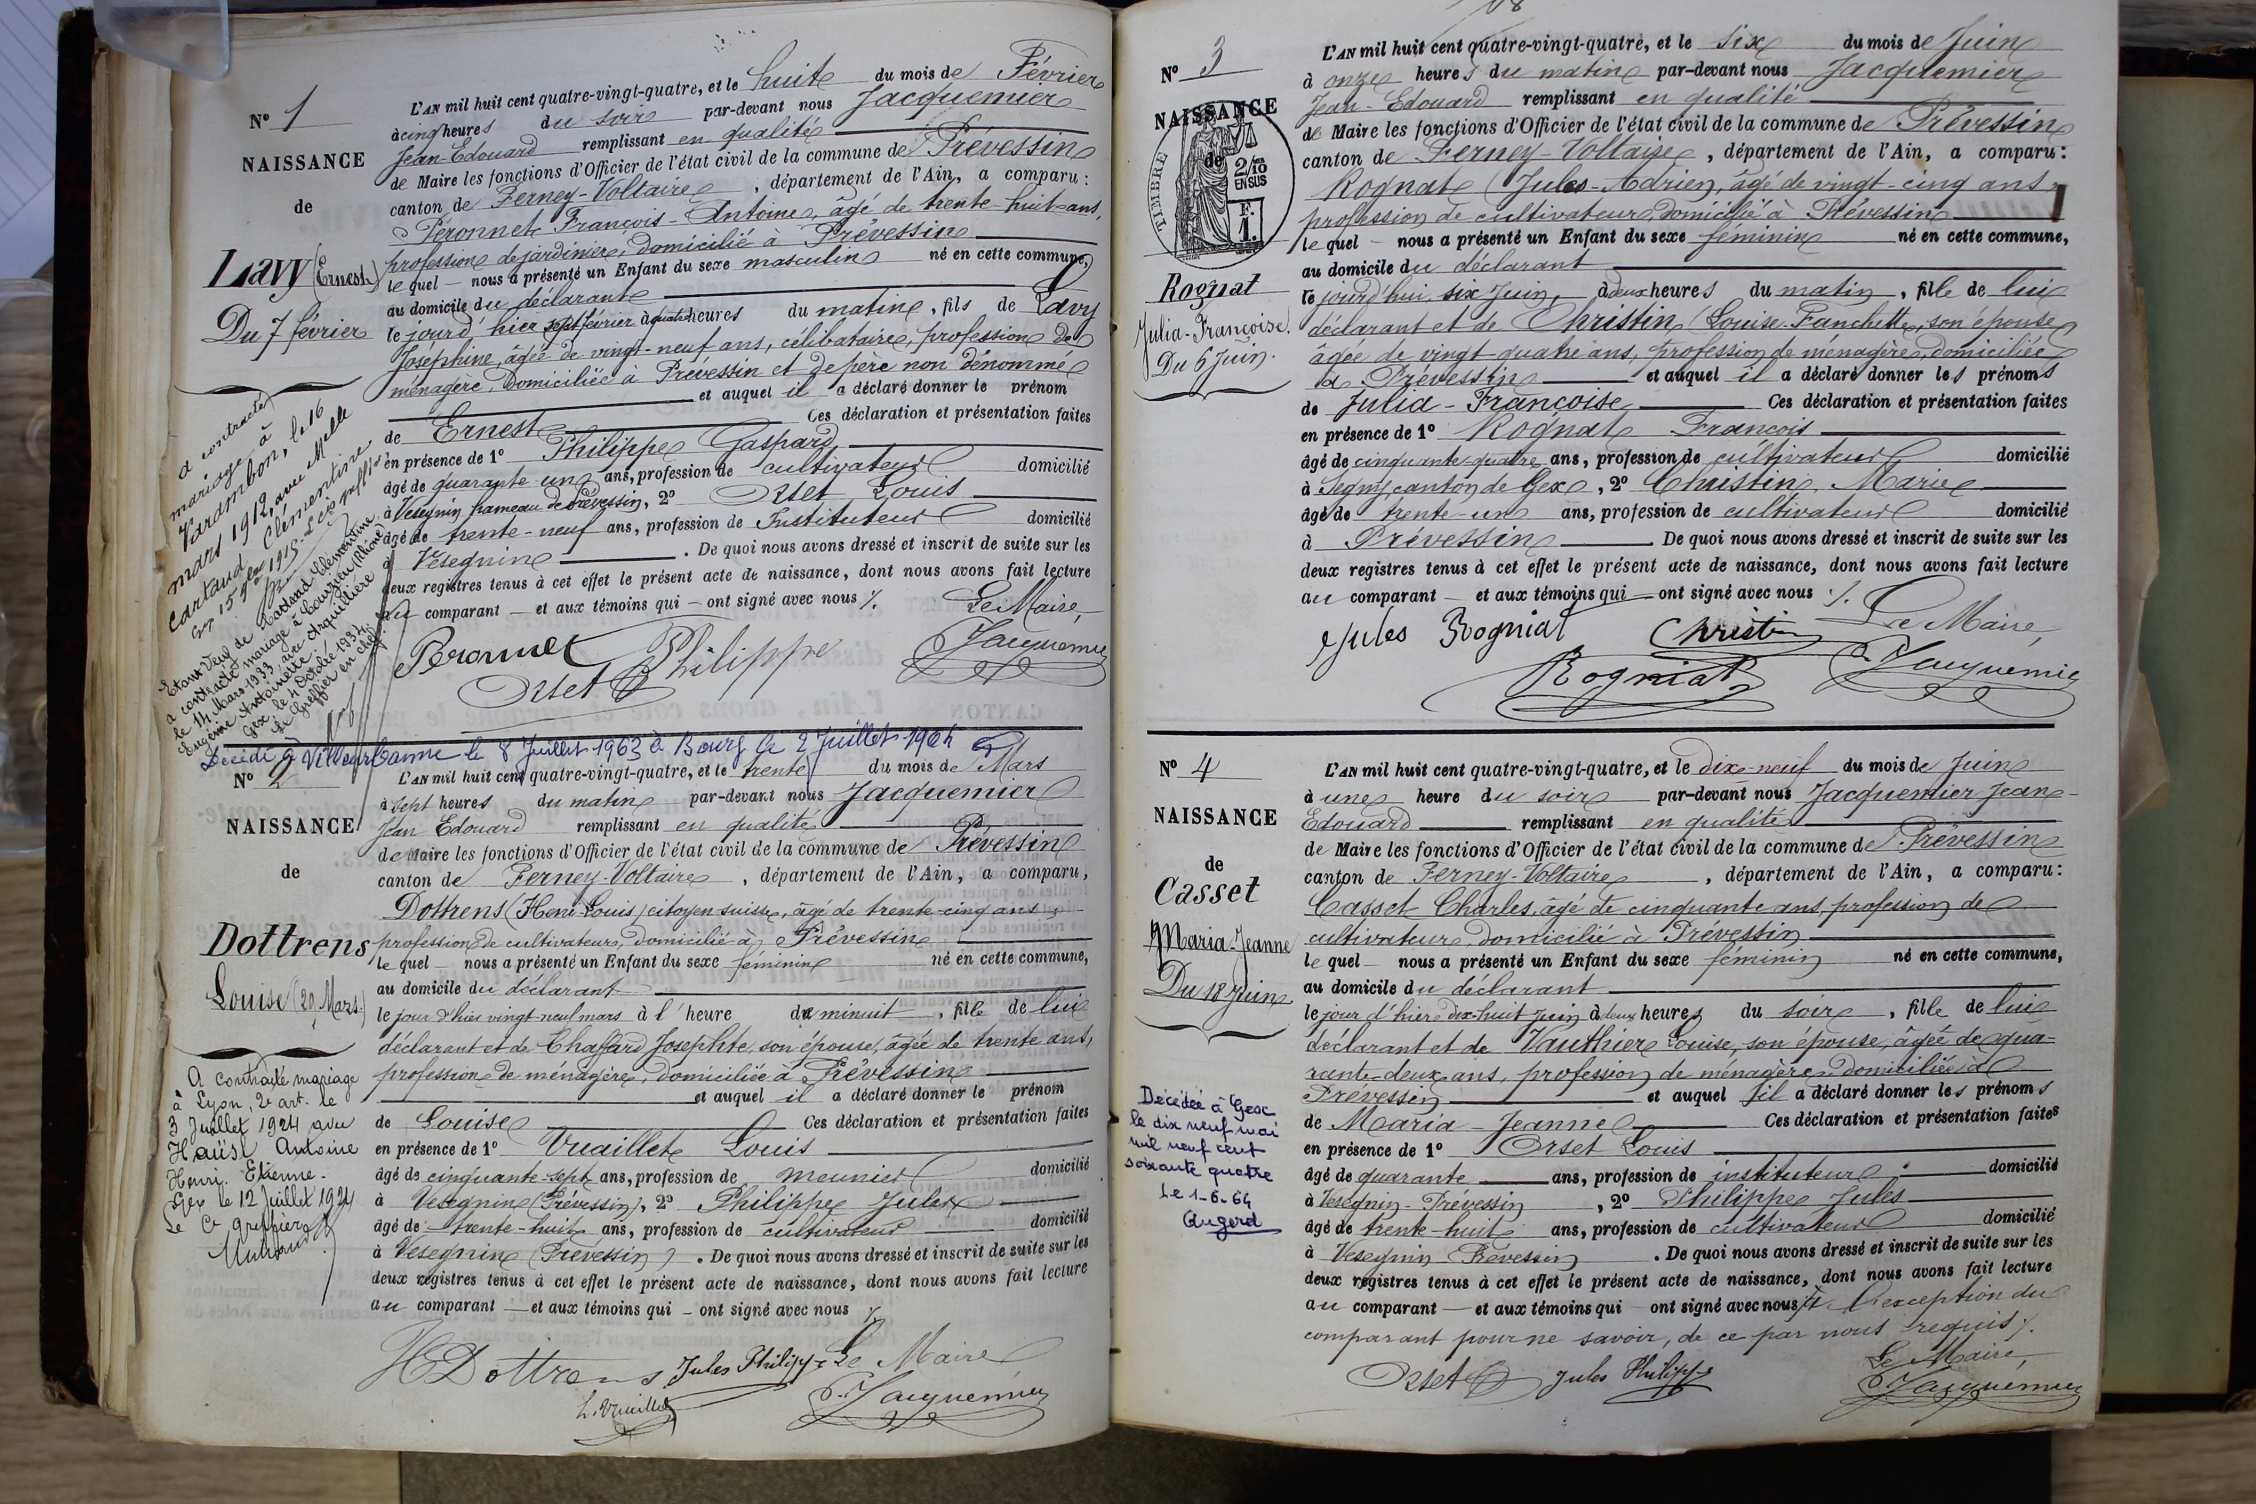 Nº 1
NAISSANCE
de
Lavy (Ernest)
Du 7 février
a contracté
mariage à
Varambon, le 16
mars 1912, avec Melle
Cartaud Clémentine
Etant veuf de Cartaud Clémentine
a contracté mariage à Courzieu (Rhône)
le 14 Mars 1933 avec Arquillière
Eugénie Antoinette.
Gex le 4 Octobre 1934
Le Greffier en chef
L'AN mil huit cent quatre-vingt-quatre, et le huit du mois de Février
à cinq heures du soir par-devant nous Jacquemier
Jean-Edouard remplissant en qualité
de Maire les fonctions d'Officier de l'état civil de la commune de Prévessin
canton de Ferney-Voltaire, département de l'Ain, a comparu:
Péronnet François-Antoine, âgé de trente-huit ans,
profession de jardinier, domicilié à Prévessin
lequel nous a présenté un Enfant du sexe masculin né en cette commune,
au domicile du déclarant
le jour d'hier sept février à quatre heures du matin, fils de Lavy
Josephine, âgée de vingt-neuf ans, célibataire, profession de
ménagère, domiciliée à Prévessin et de père non dénommé
et auquel il a déclaré donner le prénom
de Ernest Ces déclaration et présentation faites
en présence de 1º Philippe Gaspard
âgé de quarante un ans, profession de cultivateur domicilié
à Vesegnin hameau de Prévessin, 2º Orset Louis
âgé de trente-neuf ans, profession de Instituteur domicilié
à Vesegnin. De quoi nous avons dressé et inscrit de suite sur les
deux registres tenus à cet effet le présent acte de naissance, dont nous avons fait lecture
au comparant et aux témoins qui ont signé avec nous %. Le Maire,
Peronnet Philippe Jacquemier
Orset
Décédé à Villeurbanne le 8 Juillet 1963 à Bourg le 2 Juillet 1964
Nº 2
NAISSANCE
de
Dottrens
Louise (29 Mars)
A contracté mariage
à Lyon, 2e art. le
3 Juillet 1924 avec
Haüsl Antoine
Henri Etienne.
Gex le 12 Juillet 1924
Le Cs greffier
L'AN mil huit cent quatre-vingt-quatre, et le trente du mois de Mars
à sept heures du matin par-devant nous Jacquemier
Jean Edouard remplissant en qualité
de Maire les fonctions d'Officier de l'état civil de la commune de Prévessin
canton de Ferney-Voltaire, département de l'Ain, a comparu,
Dottrens (Henri-Louis) citoyen suisse, âgé de trente-cinq ans
profession de cultivateur, domicilié à Prévessin
lequel nous a présenté un Enfant du sexe féminin né en cette commune,
au domicile du déclarant
le jour d'hier vingt-neuf mars à l'heure de minuit, fille de lui
déclarant et de Chaffard Josephte, son épouse, âgée de trente ans,
profession de ménagère, domiciliée à Prévessin
et auquel il a déclaré donner le prénom
de Louise Ces déclaration et présentation faites
en présence de 1º Vuaillet Louis
âgé de cinquante-sept ans, profession de meunier domicilié
à Vesegnin (Prévessin), 2º Philippe Jules
âgé de trente-huit ans, profession de cultivateur domicilié
à Vesegnin (Prévessin). De quoi nous avons dressé et inscrit de suite sur les
deux registres tenus à cet effet le présent acte de naissance, dont nous avons fait lecture
au comparant et aux témoins qui ont signé avec nous %
H Dottrens Jules Philippe Le Maire
L. Vuaillet Jacquemier
Nº 3
NAISSANCE
de
TIMBRE
2/10
EN SUS
F.
1.
Rognat
Julia-Françoise
Du 6 Juin.
L'AN mil huit cent quatre-vingt-quatre, et le six du mois de Juin
à onze heures du matin par-devant nous Jacquemier
Jean-Edouard remplissant en qualité
de Maire les fonctions d'Officier de l'état civil de la commune de Prévessin
canton de Ferney-Voltaire, département de l'Ain, a comparu:
Rognat (Jules-Adrien), âgé de vingt-cinq ans
profession de cultivateur, domicilié à Prévessin
lequel nous a présenté un Enfant du sexe féminin né en cette commune,
au domicile du déclarant
le jourd'hui six Juin, à deux heures du matin, fille de lui
déclarant et de Christin (Louise-Fanchette), son épouse,
âgée de vingt-quatre ans, profession de ménagère, domiciliée
à Prévessin et auquel il a déclaré donner les prénoms
de Julia-Françoise Ces déclaration et présentation faites
en présence de 1º Rognat François
âgé de cinquante-quatre ans, profession de cultivateur domicilié
à Segny canton de Gex, 2º Christin Marie
âgé de trente-un ans, profession de cultivateur domicilié
à Prévessin. De quoi nous avons dressé et inscrit de suite sur les
deux registres tenus à cet effet le présent acte de naissance, dont nous avons fait lecture
au comparant et aux témoins qui ont signé avec nous %.
Jules Rogniat Christin Le Maire,
Rogniat Jacquemier
Nº 4
NAISSANCE
de
Casset
Maria-Jeanne
Du 18 Juin
Décédée à Gex
le dix neuf mai
mil neuf cent
soixante quatre
Le 1-6-64
Augerd
L'AN mil huit cent quatre-vingt-quatre, et le dix-neuf du mois de Juin
à une heure du soir par-devant nous Jacquemier Jean-
Edouard remplissant en qualité
de Maire les fonctions d'Officier de l'état civil de la commune de Prévessin
canton de Ferney-Voltaire, département de l'Ain, a comparu:
Casset Charles, âgé de cinquante ans, profession de
cultivateur, domicilié à Prévessin
lequel nous a présenté un Enfant du sexe féminin né en cette commune,
au domicile du déclarant
le jour d'hier dix-huit Juin à deux heures du soir, fille de lui
déclarant et de Vauthier Louise, son épouse, âgée de qua-
rante-deux ans, profession de ménagère, domiciliée à
Prévessin et auquel il a déclaré donner les prénoms
de Maria-Jeanne Ces déclaration et présentation faites
en présence de 1º Orset Louis
âgé de quarante ans, profession de instituteur domicilié
à Vesegnin-Prévessin, 2º Philippe Jules
âgé de trente-huit ans, profession de cultivateur domicilié
à Vesegnin Prévessin. De quoi nous avons dressé et inscrit de suite sur les
deux registres tenus à cet effet le présent acte de naissance, dont nous avons fait lecture
au comparant et aux témoins qui ont signé avec nous à l'exception du
comparant pour ne savoir, de ce par nous requis %.
Le Maire,
Orset Jules Philippe Jacquemier